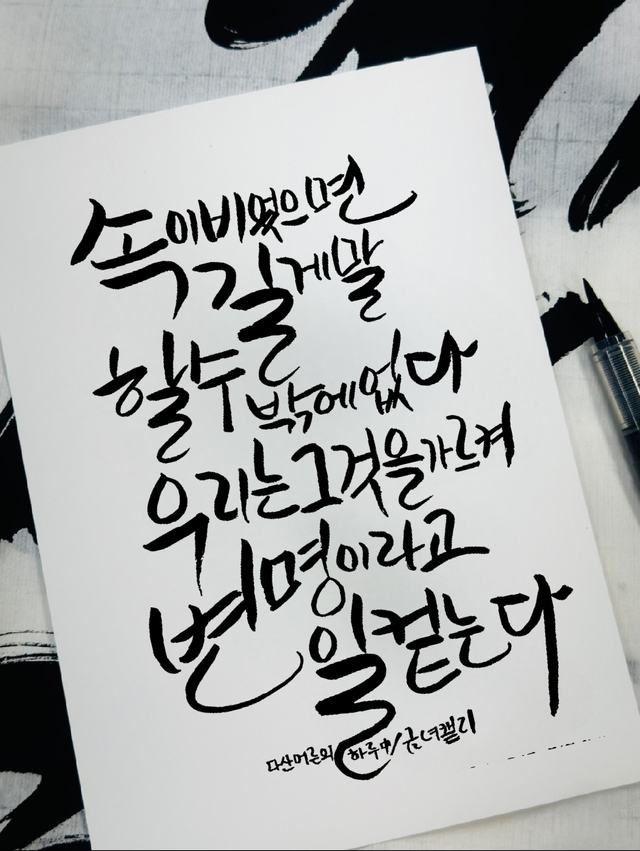 속이비었으면
길게말
할수밖에없다
우리는그것을가르켜
변명이라고
일컫는다
다산어른의 하루中/금녀캘리